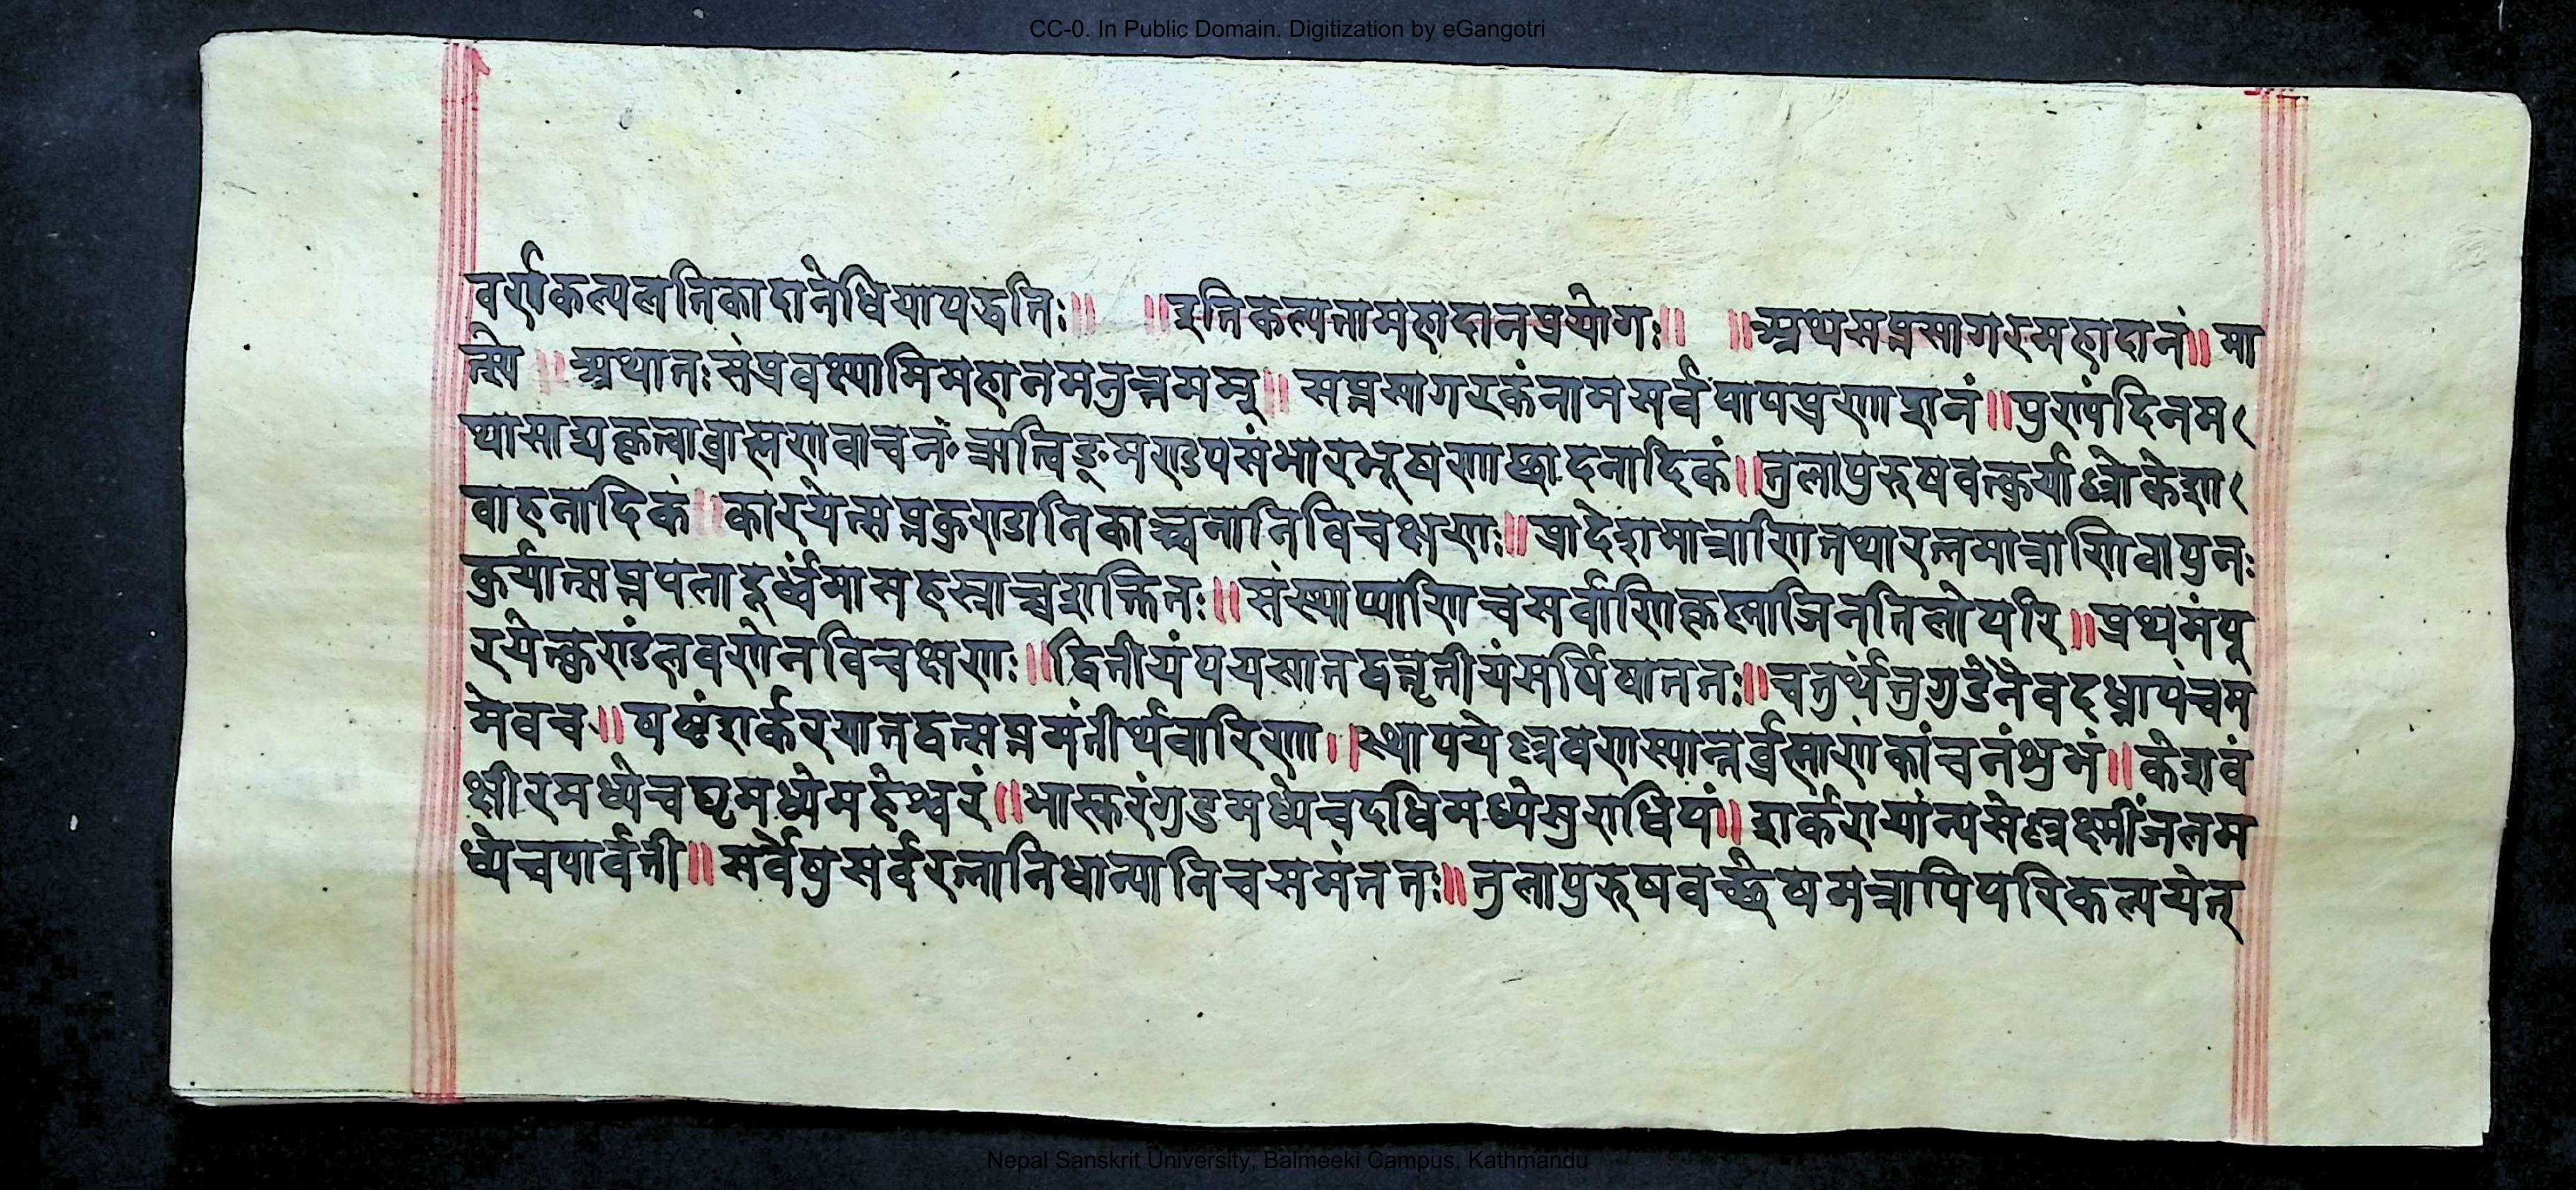 CC-0. In Public Domain. Digitization by eGangotri
वर्णकल्पलतिकादानेधियापद्धतिः॥ ॥इतिकल्पनामहादानप्रयोगः॥ ॥अथसप्तसागरमहादानं॥मा
त्स्ये॥अथातःसंप्रवक्ष्यामिमहानमनुत्तमम्॥सप्तसागरकंनामसर्वपापप्रणाशनं॥पुण्यंदिनम
थासाद्यकृत्वाब्राह्मणवाचनंॠत्विङ्मण्डपसंभारभूषणाछादनादिकं॥तुलापुरुषवत्कुर्याल्लोकेशा
वाहनादिकं॥कारयेत्सप्तकुण्डानिकाञ्चनानिविचक्षणः॥प्रादेशमात्राणितथारत्नमात्राणिवापुनः
कुर्यात्सप्तपलादूर्ध्वंमासहस्त्राच्चशक्तितः॥संस्थाप्याणिचसर्वाणिकृष्णाजिनतिलोपरि॥प्रथमंपू
रयेत्कुण्डंलवणेनविचक्षणः॥द्वितीयंपयसातद्वत्तृतीयंसर्पिषाततः॥चतुर्थंतुगुडेनैवदध्नापंचम
मेवच॥षष्ठंशर्करयातद्वत्सप्तमंतीर्थवारिणा॥स्थापयेल्लवणस्यान्तर्ब्रह्माणंकांचनंशुभं॥केशवं
क्षीरमध्येचघृमध्येमहेश्वरं॥भास्करंगुडमध्येचदधिमध्येसुराधिपं॥शर्करायांन्यसेल्लक्ष्मींजलम
ध्येचपार्वती॥सर्वेषुसर्वरत्नानिधान्यानिचसमंततः॥तुलापुरुषवच्छेषमत्रापिपरिकल्पयेत्
Nepal Sanskrit University, Balmeeki Campus, Kathmandu